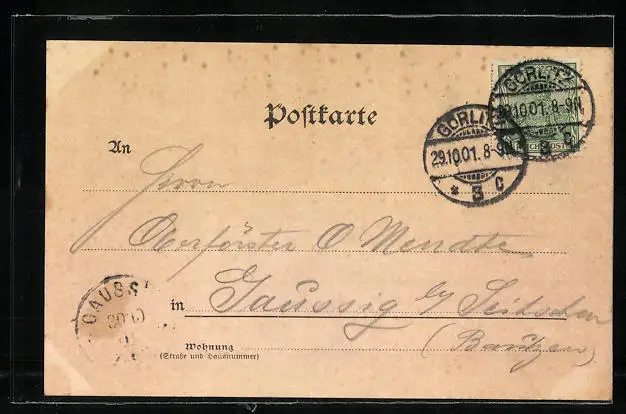 Postkarte
GÖRLITZ
29.10.01. 8-9N
* 3 C
GÖRLITZ
29.10.01. 8-9N
3 C
An
Herrn
Oberförster O Mendte
in Gaussig by Seitschen
(Bautzen)
GAUSS
30 10
Wohnung
(Straße und Hausnummer)